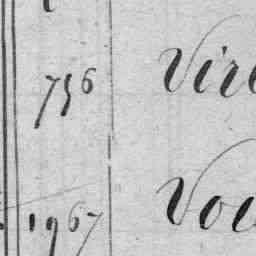 756 Vir
1967 Vou